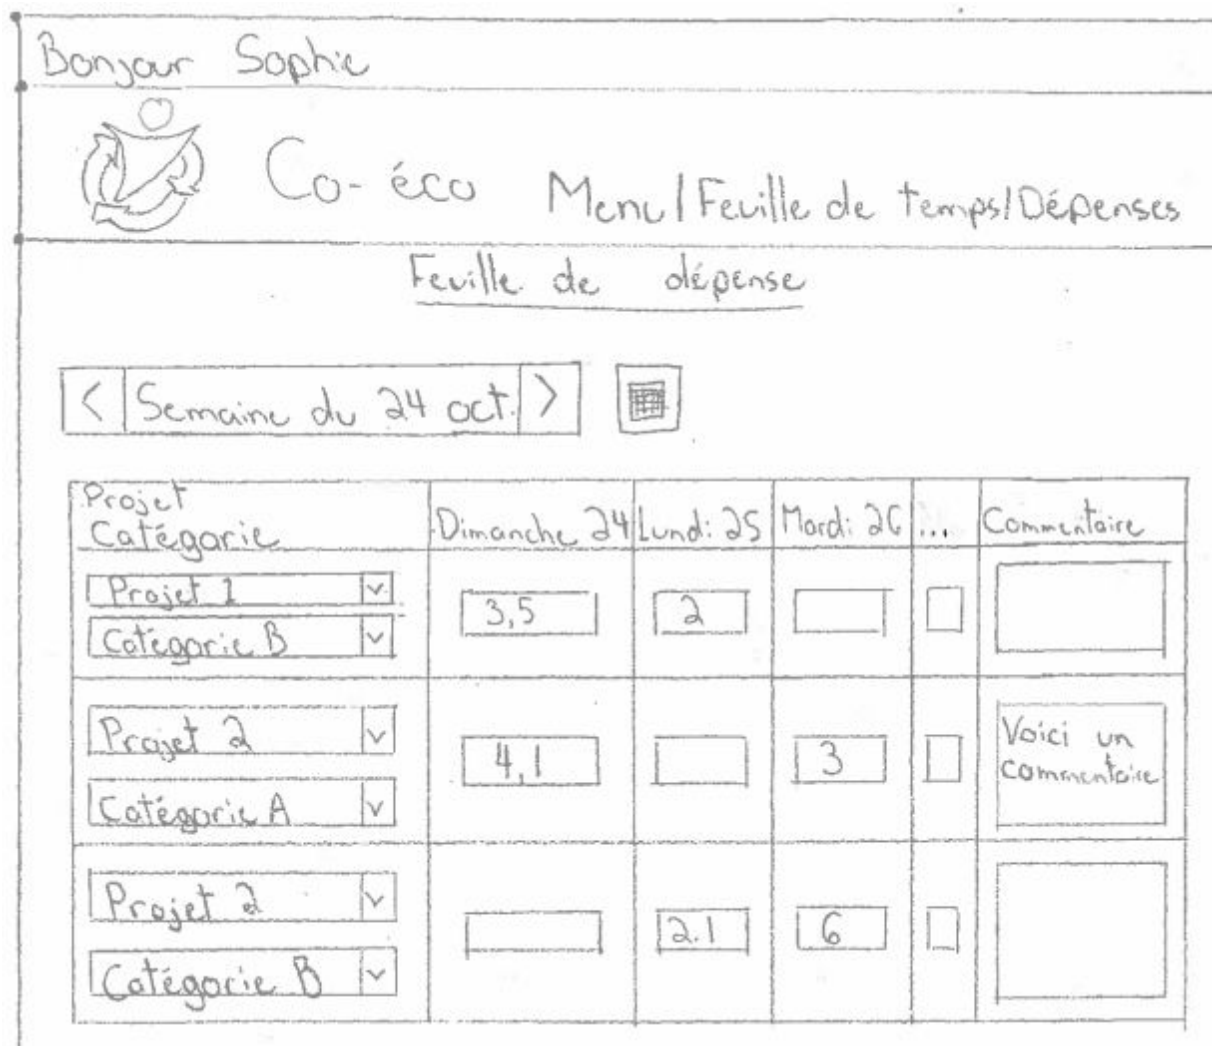 Bonjour Sophie
Co-éco Menu/Feuille de temps/Dépenses
Feuille de dépense
< Semaine du 24 oct. >
Projet
Catégorie Dimanche 24 Lundi 25 Mardi 26 ... Commentaire
Projet 1
3,5 2
Catégorie B
Projet 2
4,1 3 Voici un
commentaire
Catégorie A
Projet 2
2.1 6
Catégorie B